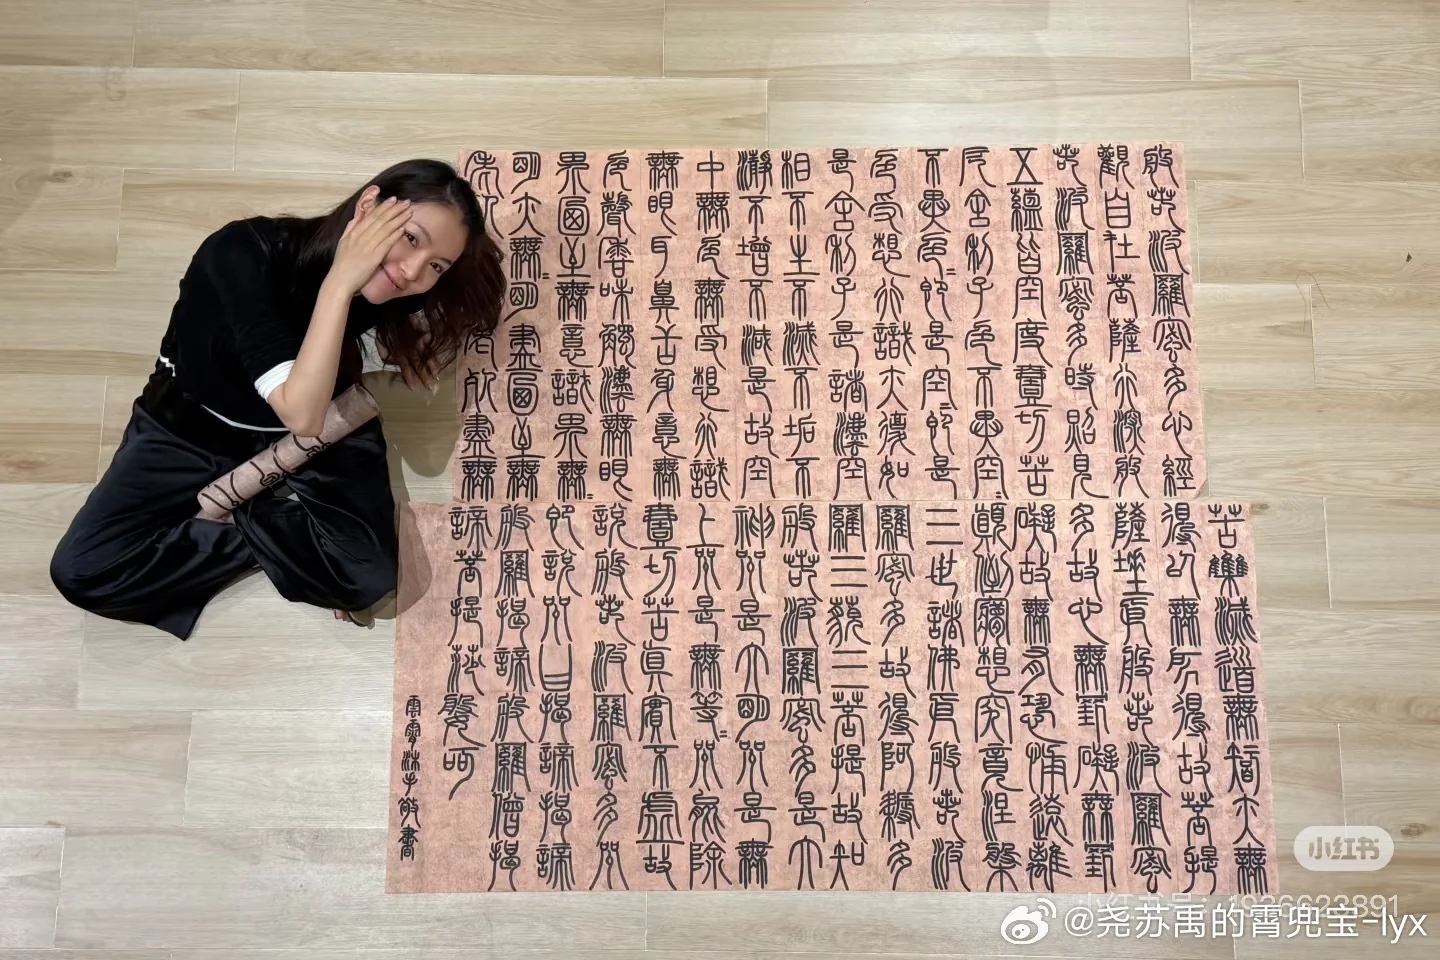 般若波羅蜜多心經
觀自在菩薩行深般
若波羅蜜多時照見
五蘊皆空度壹切苦
厄舍利子色不異空
不異色=即是空=即是
色受想行識亦復如
是舍利子是諸灋空
相不生不滅不垢不
瀞不增不減是故空
中無色無受想行識
無眼耳鼻舌身意無
色聲香味觸灋無眼
界乃至無意識界無=
明亦無=明盡乃至無
老死老死盡無
苦集滅道無智亦無
得以無所得故菩提
薩埵依般若波羅蜜
多故心無罣礙無罣
礙故無有恐怖遠離
顛倒夢想究竟涅槃
三世諸佛依般若波
羅蜜多故得阿耨多
羅三藐三菩提故知
般若波羅蜜多是大
神咒是大明咒是無
上咒是無等=咒能除
壹切苦真實不虛故
說般若波羅蜜多咒
即說咒曰揭諦揭諦
般羅揭諦般羅僧揭
諦菩提莎婆呵
雲霄沐手敬書
小红书
小红书号：1936623891
@尧苏禹的霄兜宝-lyx